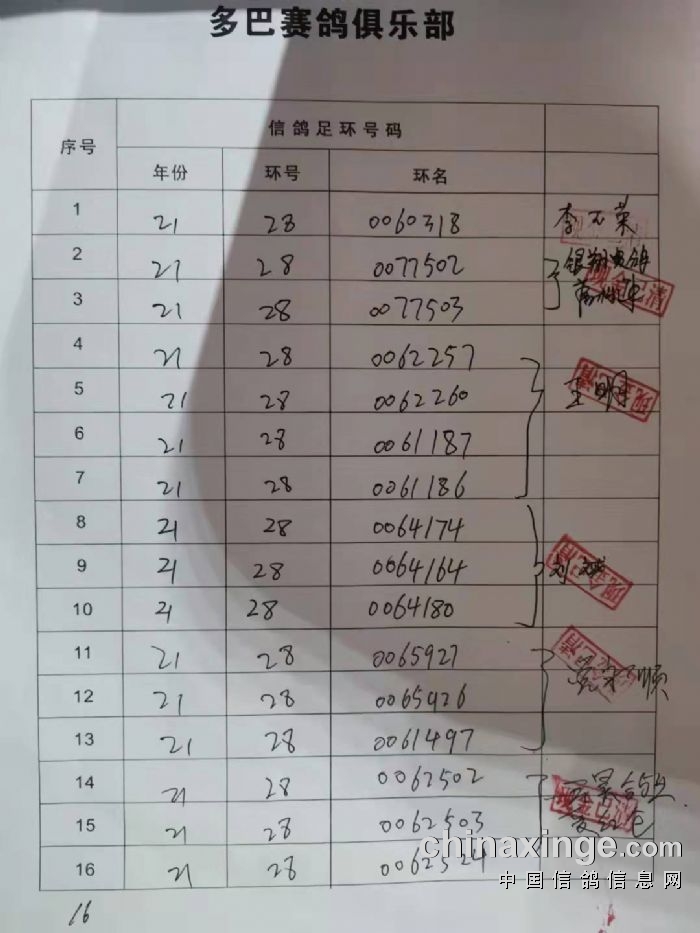 多巴赛鸽俱乐部
序号 信鸽足环号码
年份 环号 环名
1 21 28 0060318 李 荣
2 21 28 0077502 银翔
3 21 28 0077503
4 21 28 0062257
5 21 28 0062260 王明
6 21 28 0061187
7 21 28 0061186
8 21 28 0064174
9 21 28 0064164 刘
10 21 28 0064180
11 21 28 0065927
12 21 28 0065426 顺
13 21 28 0061497
14 21 28 0062502
15 21 28 0062503
16 21 28 0062524
chinaxinge.com
中国信鸽信息网
16